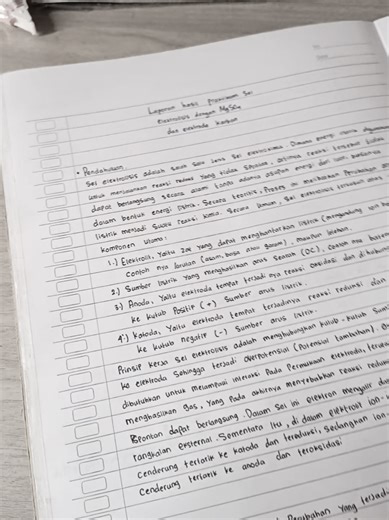 Laporan hasil Praktikum Sel
elektrolisis dengan MgSO4
dan elektroda karbon
• Pendahuluan
Sel elektrolisis adalah salah satu jenis sel elektrokimia. Dimana energi listrik digunakan
untuk menjalankan reaksi redoks yang tidak spontan, artinya reaksi tersebut tidak
dapat berlangsung secara alami tanpa adanya asupan energi dari luar, biasanya
dalam bentuk energi listrik. Secara teoritis, Proses ini melibatkan Perubahan
listrik menjadi suatu reaksi kimia. Secara Umum, Sel elektrolisis terdiri atas
komponen Utama:
1.) Elektrolit, Yaitu Zat yang dapat menghantarkan listrik (mengandung ion
contoh nya larutan (asam, basa atau garam), maupun lelehan.
2.) Sumber listrik Yang menghasilkan arus searah (DC), Contoh nya baterai
3) Anoda, Yaitu elektroda tempat terjadi nya reaksi oksidasi dan dihubung
ke kutub Positif (+) Sumber arus listrik.
4.) Katoda, Yaitu elektroda tempat terjadinya reaksi reduksi dan
ke kutub negatif (-) Sumber arus listrik.
Prinsip kerja Sel elektrolisis adalah menghubungkan kutub-kutub Sum
ke elektroda Sehingga terjadi overpotensial (Potensial tambahan),
dibutuhkan untuk melampaui interaksi Pada Permukaan elektroda, teruta
menghasilkan gas, Yang Pada akhirnya menyebabkan reaksi redok
spontan dapat berlangsung. Dalam Sel ini elektron mengalir
rangkaian eksternal. Sementara itu, di dalam elektrolit ion-
Cenderung tertarik ke katoda dan tereduksi, sedangkan ion-
Cenderung tertarik ke anoda dan teroksidasi
Perubahan Yang terjadi